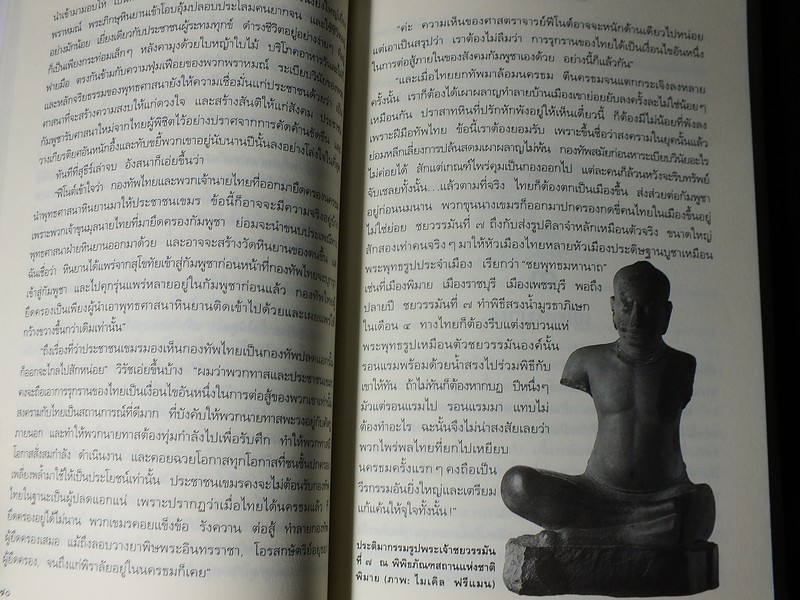 นำเข้ามามอบให้
พราหมณ์ พระภิกษุหินยานเข้าโอบอุ้มปลอบประโลมคนยากจน และใช้ชีวิต
อย่างมักน้อย เยี่ยงเดียวกับประชาชนผู้ระทมทุกข์ ดำรงชีวิตอยู่อย่างง่ายๆ
ก็เป็นเพียงกระท่อมเล็กๆ หลังคามุงด้วยใบหญ้าใบไม้ บริโภคอาหารวันละ
ฟายมือ ตรงกันข้ามกับความฟุ่มเฟือยของพวกพราหมณ์ ระเบียบวินัยของ
และหลักจริยธรรมของพุทธศาสนายังให้ความเชื่อมั่นแก่ประชาชนด้วยว่า
ศาสนาที่จะสร้างความสงบให้แก่ดวงใจ และสร้างสันติให้แก่สังคม ประชาชน
กัมพูชารับศาสนาใหม่จากไทยผู้พิชิตไว้อย่างปราศจากการคัดค้านขัดขืน และ
วางเกียรติยศอันหนักอึ้งและทับขยี้พวกเขาอยู่นับนานปีนั้นลงอย่างโล่งใจ
ทันทีที่สุธีร์เล่าจบ อังสนาก็เอ่ยขึ้นว่า
"ฟิโนต์เข้าใจว่า กองทัพไทยและพวกเจ้านายไทยที่ออกมายึดครองนครธม
นำพุทธศาสนาหินยานมาให้ประชาชนเขมร ข้อนี้ก็อาจจะมีความจริงอยู่
เพราะพวกเจ้าขุนมูลนายไทยที่มายึดครองกัมพูชา ย่อมจะนำขนบประเพณี
พุทธศาสนาฝ่ายหินยานออกมาด้วย และอาจจะสร้างวัดหินยานของตนขึ้น
ฉันเชื่อว่า หินยานได้แพร่จากสุโขทัยเข้าสู่กัมพูชาก่อนหน้าที่กองทัพไทยจะ
เข้าสู่กัมพูชา และไปคุกรุ่นแพร่หลายอยู่ในกัมพูชาก่อนแล้ว กองทัพไทย
ยึดครองเป็นเพียงผู้นำเอาพุทธศาสนาหินยานติดเข้าไปด้วยและเผยแพร่
กว้างขวางขึ้นกว่าเดิมเท่านั้น"
"ถึงเรื่องที่ว่าประชาชนเขมรมองเห็นกองทัพไทยเป็นกองทัพปลดแอกนั้น
ก็ออกจะไกลไปสักหน่อย" วิรัชเอ่ยขึ้นบ้าง "ผมว่าพวกทาสและประชาชนเขมร
คงจะถือเอาการรุกรานของไทยเป็นเงื่อนไขอันหนึ่งในการต่อสู้ของพวกเขาเท่านั้น
สงครามกับไทยเป็นสถานการณ์ที่ดีมาก ที่บังคับให้พวกนายทาสพะวงอยู่กับศัตรู
ภายนอก และทำให้พวกนายทาสต้องทุ่มกำลังไปเพื่อรับศึก ทำให้พวกทาสมี
โอกาสสั่งสมกำลัง ดำเนินงาน และคอยฉวยโอกาสทุกโอกาสที่ชนชั้นปกครอง
เพลี่ยงพล้ำมาใช้ให้เป็นประโยชน์เท่านั้น ประชาชนเขมรคงจะไม่ต้อนรับกองทัพ
ไทยในฐานะเป็นผู้ปลดแอกแน่ เพราะปรากฏว่าเมื่อไทยได้นครธมแล้ว ก็
ยึดครองอยู่ได้ไม่นาน พวกเขมรคอยแข็งข้อ รังควาน ต่อสู้ ทำลายกองทัพ
ผู้ยึดครองเสมอ แม้ถึงลอบวางยาพิษพระอินทราชา, โอรสกษัตริย์อยุธยา
ผู้ยึดครอง, จนถึงแก่พิราลัยอยู่ในนครธมก็เคย"
"ค่ะ ความเห็นของศาสตราจารย์ฟิโนต์อาจจะหนักด้านเดียวไปหน่อย
แต่เอาเป็นสรุปว่า เราต้องไม่ลืมว่า การรุกรานของไทยได้เป็นเงื่อนไขอันหนึ่ง
ในการต่อสู้ภายในของสังคมกัมพูชาเองด้วย อย่างนี้ก็แล้วกัน"
"และเมื่อไทยยกทัพมาล้อมนครธม ตีนครธมจนแตกกระเจิงลงหลาย
ครั้งนั้น เราก็ต้องได้เผาผลาญทำลายบ้านเมืองเขาย่อยยับลงครั้งละไม่ใช่น้อยๆ
เหมือนกัน ปราสาทหินที่ปรักหักพังอยู่ให้เห็นเดี๋ยวนี้ ก็ต้องมีไม่น้อยที่พังลง
เพราะฝีมือทัพไทย ข้อนี้เราต้องยอมรับ เพราะขึ้นชื่อว่าสงครามในยุคนั้นแล้ว
ย่อมหลีกเลี่ยงการปล้นสดมเผาผลาญไม่พ้น กองทัพสมัยก่อนหาระเบียบวินัยอะไร
ไม่ค่อยได้ สักแต่เกณฑ์ไพร่คุมเป็นกองออกไป แต่ละคนก็ล้วนหวังจะริบทรัพย์
จับเชลยทั้งนั้น...แล้วตามที่จริง ไทยก็ต้องตกเป็นเมืองขึ้น ส่งส่วยต่อกัมพูชา
อยู่ก่อนนมนาน พวกขุนนางเขมรก็ออกมาปกครองกดขี่คนไทยในเมืองขึ้นอยู่
ไม่ใช่ย่อย ชยวรรมันที่ ๗ ถึงกับส่งรูปศิลาจำหลักเหมือนตัวจริง ขนาดใหญ่
สักสองเท่าคนจริง ๆ มาให้หัวเมืองไทยหลายหัวเมืองประดิษฐานบูชาเหมือน
พระพุทธรูปประจำเมือง เรียกว่า "ชยพุทธมหานาถ"
เช่นที่เมืองพิมาย เมืองราชบุรี เมืองเพชรบุรี พอถึง
ปลายปี ชยวรรมันที่ ๗ ทำพิธีสรงน้ำมูรธาภิเษก
ในเดือน ๔ ทางไทยก็ต้องรีบแต่งขบวนแห่
พระพุทธรูปเหมือนตัวชยวรรมันองค์นั้น
รอนแรมพร้อมด้วยน้ำสรงไปร่วมพิธีกับ
เขาให้ทัน ถ้าไม่ทันก็ต้องหากบฏ ปีหนึ่งๆ
มัวแต่รอนแรมไป รอนแรมมา แทบไม่
ต้องทำอะไร ฉะนั้นจึงไม่น่าสงสัยเลยว่า
พวกไพร่พลไทยที่ยกไปเหยียบ
นครธมครั้งแรกๆ คงถือเป็น
วีรกรรมอันยิ่งใหญ่และเตรียม
แก้แค้นให้จุใจทั้งนั้น !"
ประติมากรรมรูปพระเจ้าชยวรรมัน
ที่ ๗ ณ พิพิธภัณฑสถานแห่งชาติ
พิมาย (ภาพ: ไมเคิล ฟรีแมน)